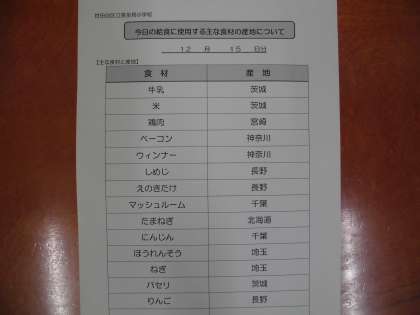 今日の給食に使用する主な食材の産地について
12 月 15 日分
【主な食材と産地】
食 材 産 地
牛乳 茨城
米 茨城
鶏肉 宮崎
ベーコン 神奈川
ウィンナー 神奈川
しめじ 長野
えのきだけ 長野
マッシュルーム 千葉
たまねぎ 北海道
にんじん 千葉
ほうれんそう 埼玉
ねぎ 埼玉
パセリ 茨城
りんご 長野